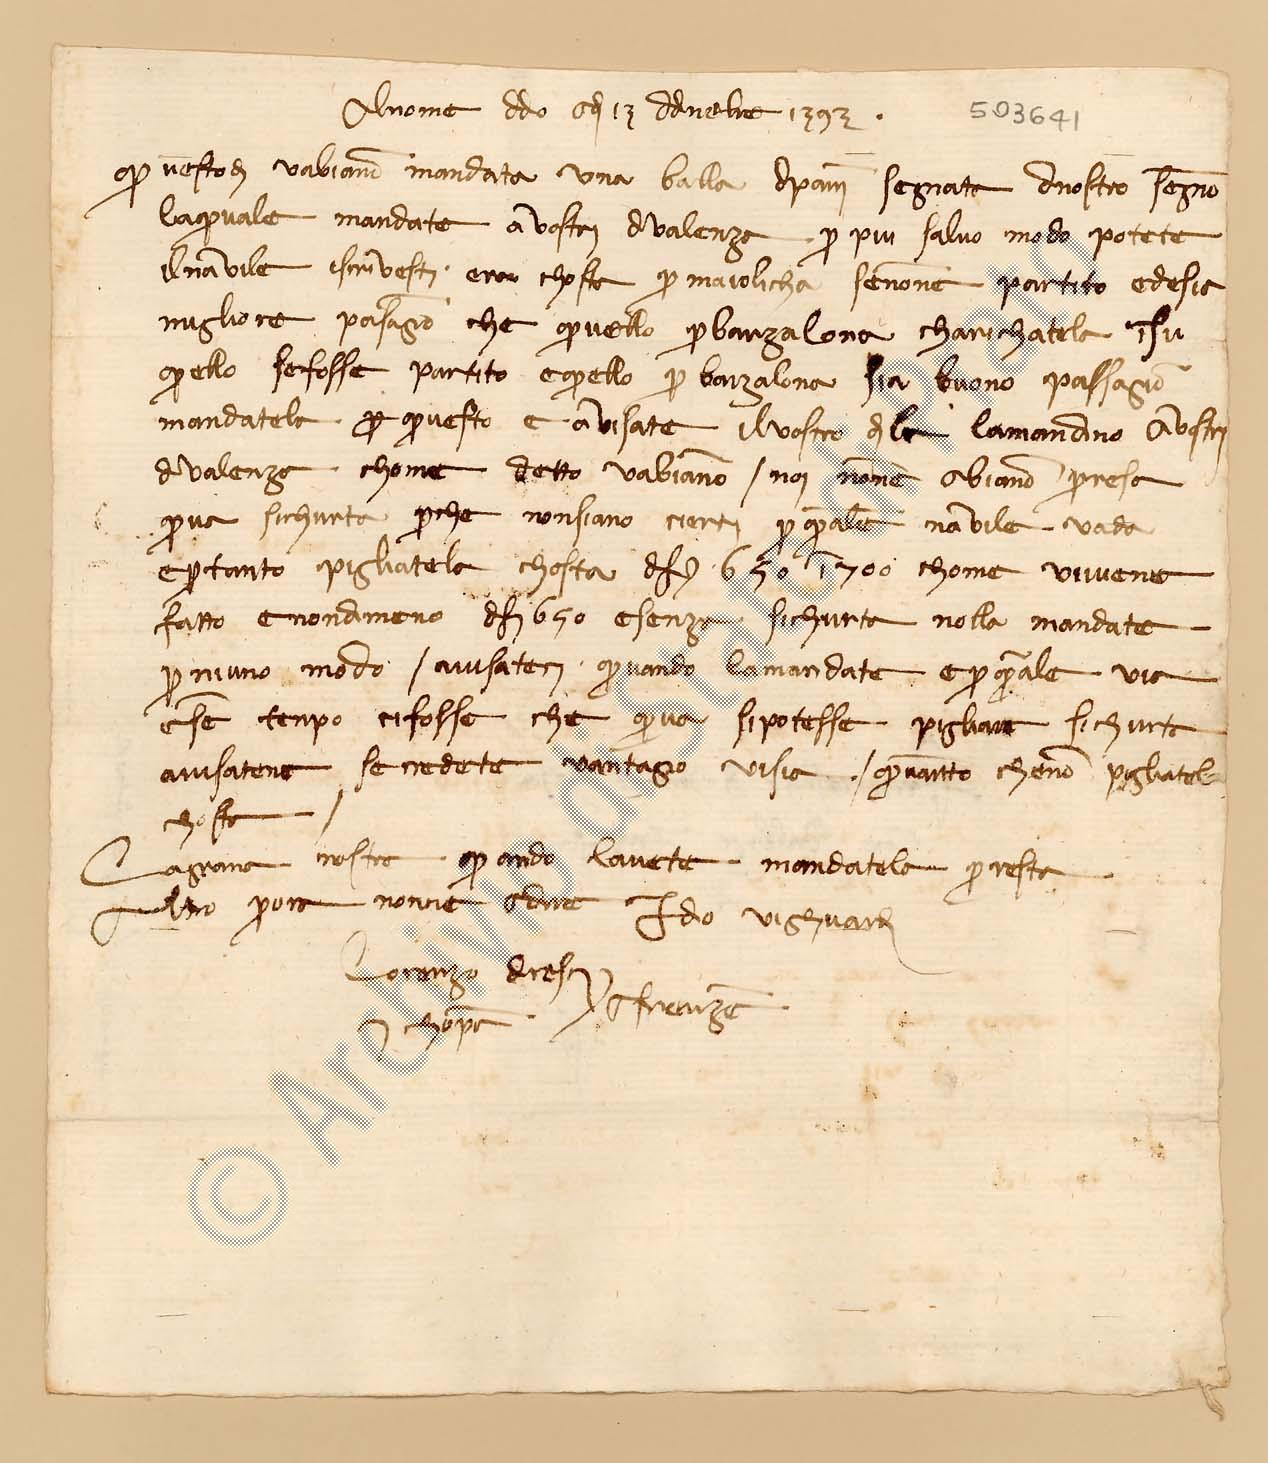 Al nome di dio a dì 13 di
503641
Per questo dì v'abiamo mandata una balla di panni segnata di nostro segno
la quale mandate a vostri di Valenza per più salvo modo potete
il navile iscrivesti era chostà per Maiolicha se none partito ed esia
migliore pasagio che quello per Barzalona charichatela in su
quello se fosse partito e quello per Barzalona sia buono passagio
mandatela per questo e avisate il vostro che la mandino a vostri
di Valenza chome detto v'abiano / noi none abiano presa
qua sichurtà perche non siano cierti per quale navile vada
e pertanto pigliatela chostà di f. 650 in 700 chome vi viene
fatto e non di meno di f. 650 e senza sichurtà nolla mandate
per niuno modo / avisateci quando la mandate e per quale via
e se tenpo ci fosse che qua si potesse pigliare sichurtà
avisatene se credete vantagio vi sia / quanto che no pigliatela
chostà /
La grana nostra quando l'avete mandatela presta
Altro per ora non c'è a dire Idio vi ghuardi
Lorenzo di
e chonpa. Firenze
© Archivio di Stato di Prato